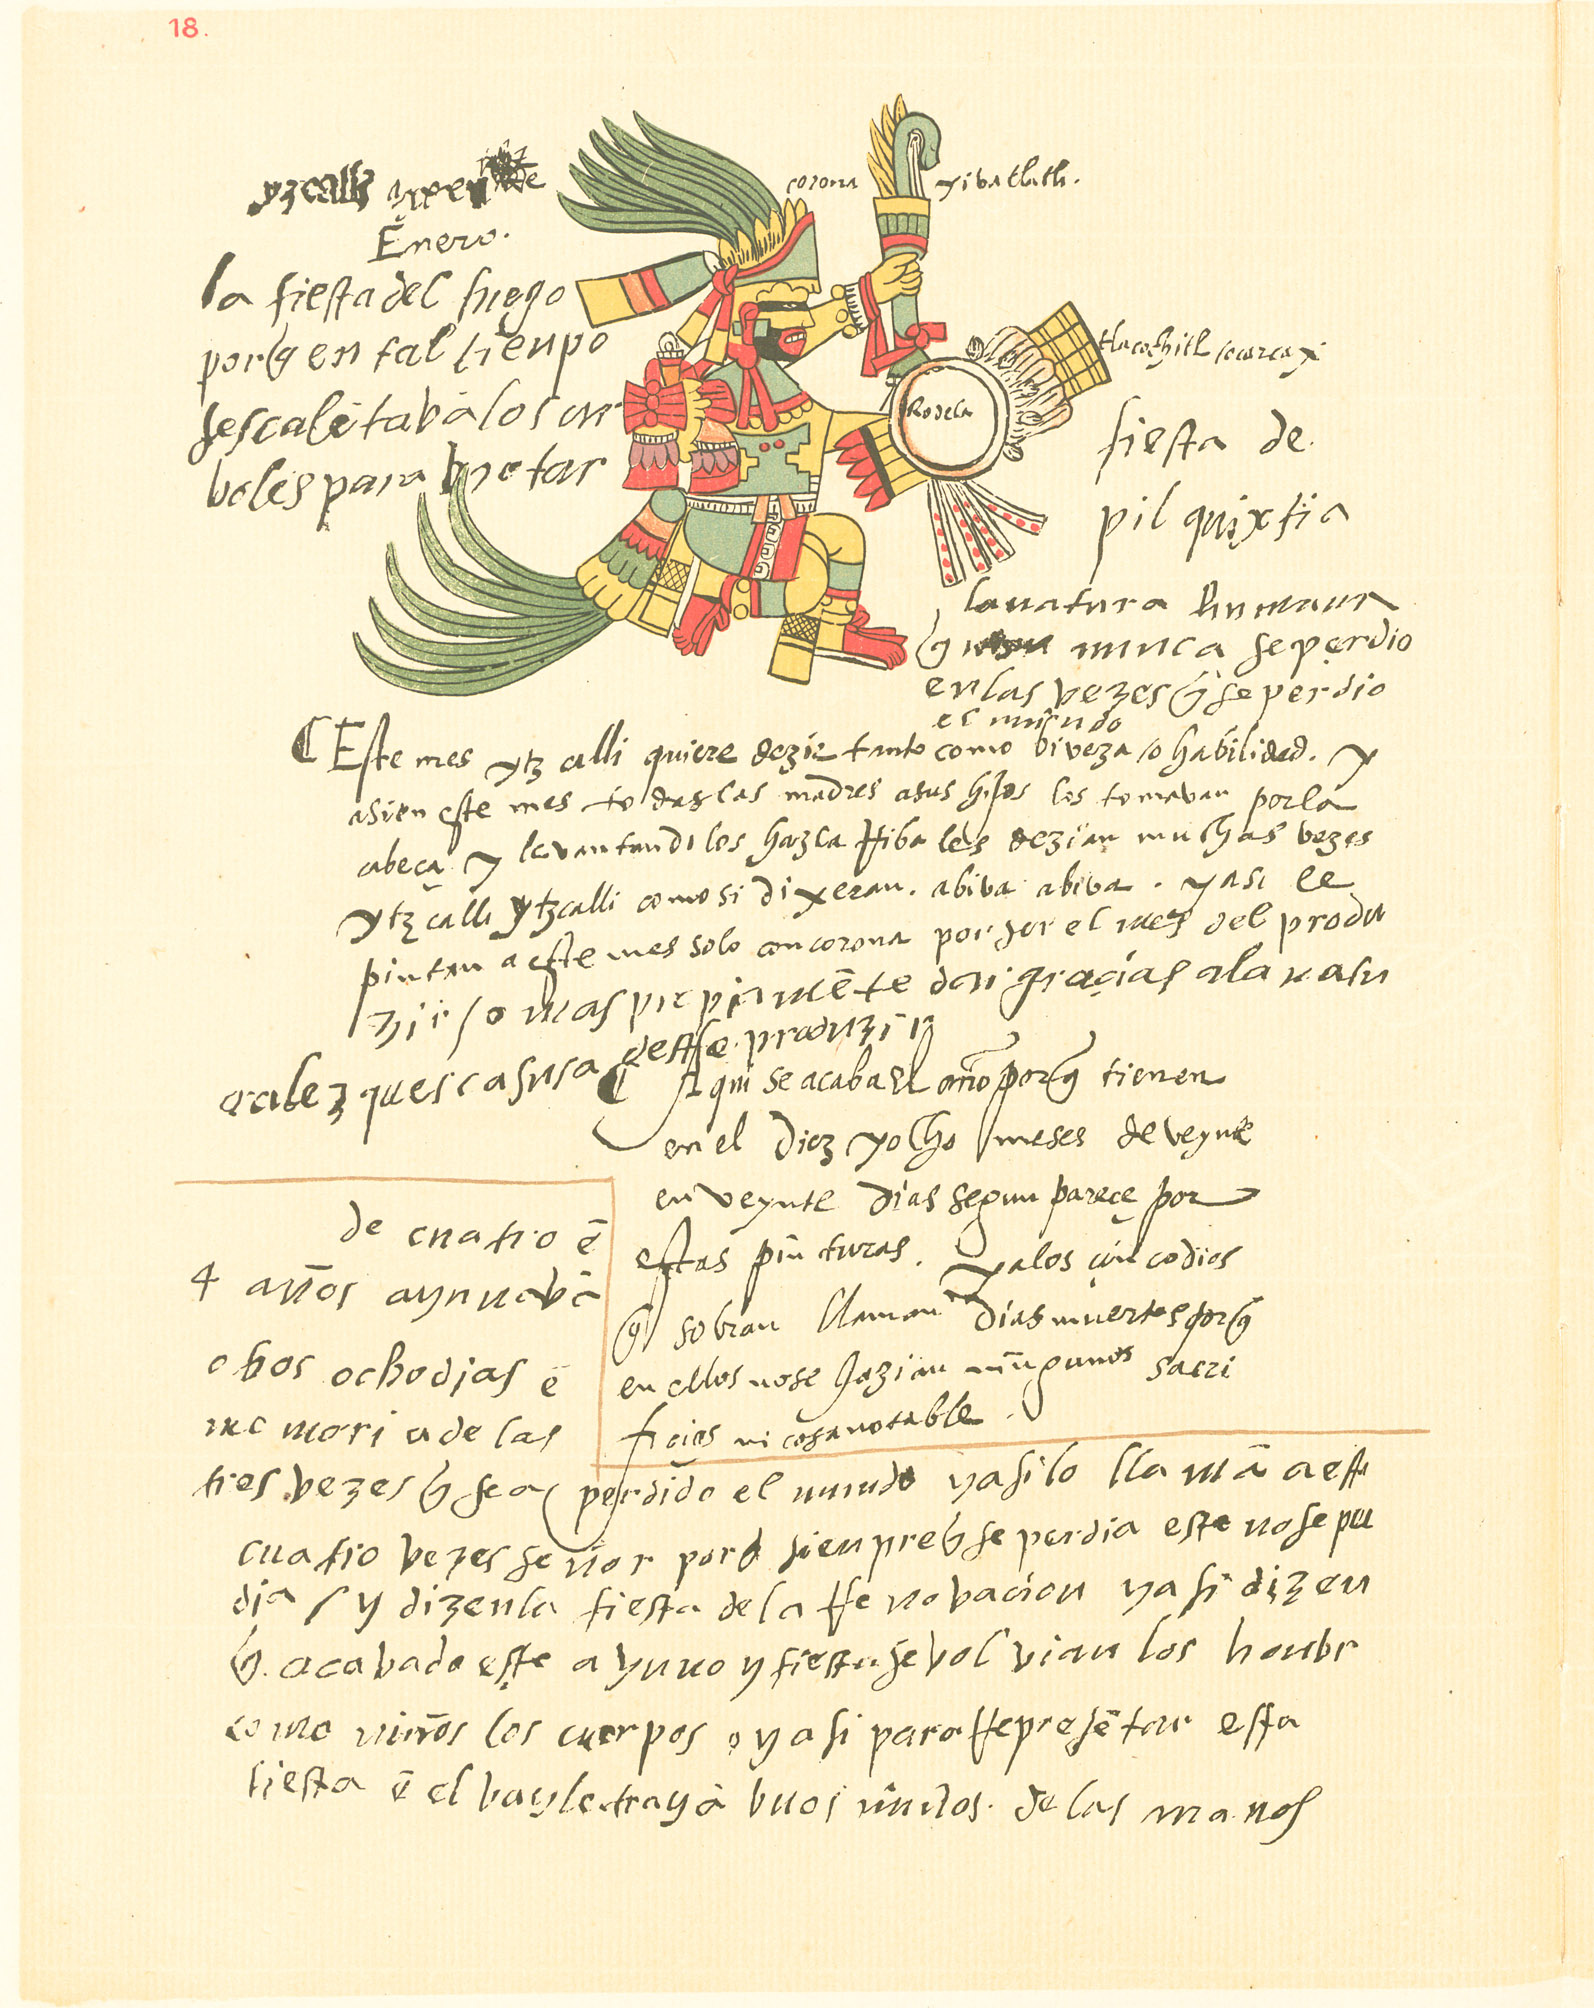 18.
yzcalli
Enero.
la fiesta del fuego
porq̃ en tal tienpo
se scalẽtabã los ar
boles para brotar
corona
xivatlatli.
tlacochitl o carcax
Rodela
fiesta de.
pilquixtia
la natura humana
q̃ nunca se perdio
en las vezes q̃ se perdio
el mũdo
Este mes ytzcalli quiere dezir tanto como biveza o habilidad. y
asi en este mes todas las madres a sus hijos los tomavan por la
cabeça y levantandolos hazia rriba les dezian muchas vezes
ytzcalli ytzcalli como si dixeran. abiva abiva. y asi le
pintan a este mes solo con corona por ser el mes del produ
zir / o mas propiamẽte dar gracias a la natu
raleza ques causa deste produzir
Aqui se acaba el año porq̃ tienen
en el diez y ocho meses de veynte
en veynte dias segun pareçe por
estas pinturas. y a los çinco dias
q̃ sobran llaman dias muertos porq̃
en ellos no se hazian ningunos sacri
ficios ni cosa notable.
de cuatro ẽ
4 años ayunabã
otros ocho dias ẽ
memoria de las
tres vezes q̃ se a perdido el mundo y asi lo llamã a este
cuatro vezes señor porq̃ sienpre q̃ se perdia este no se per
dia / y dizen la fiesta de la rrenovacion y asi dizen
q̃. acabado este ayuno y fiesta se volvian los honbr
como niños los cuerpos o y asi para rrepresẽtar esta
fiesta ẽ el bayle trayã unos niños. de las manos